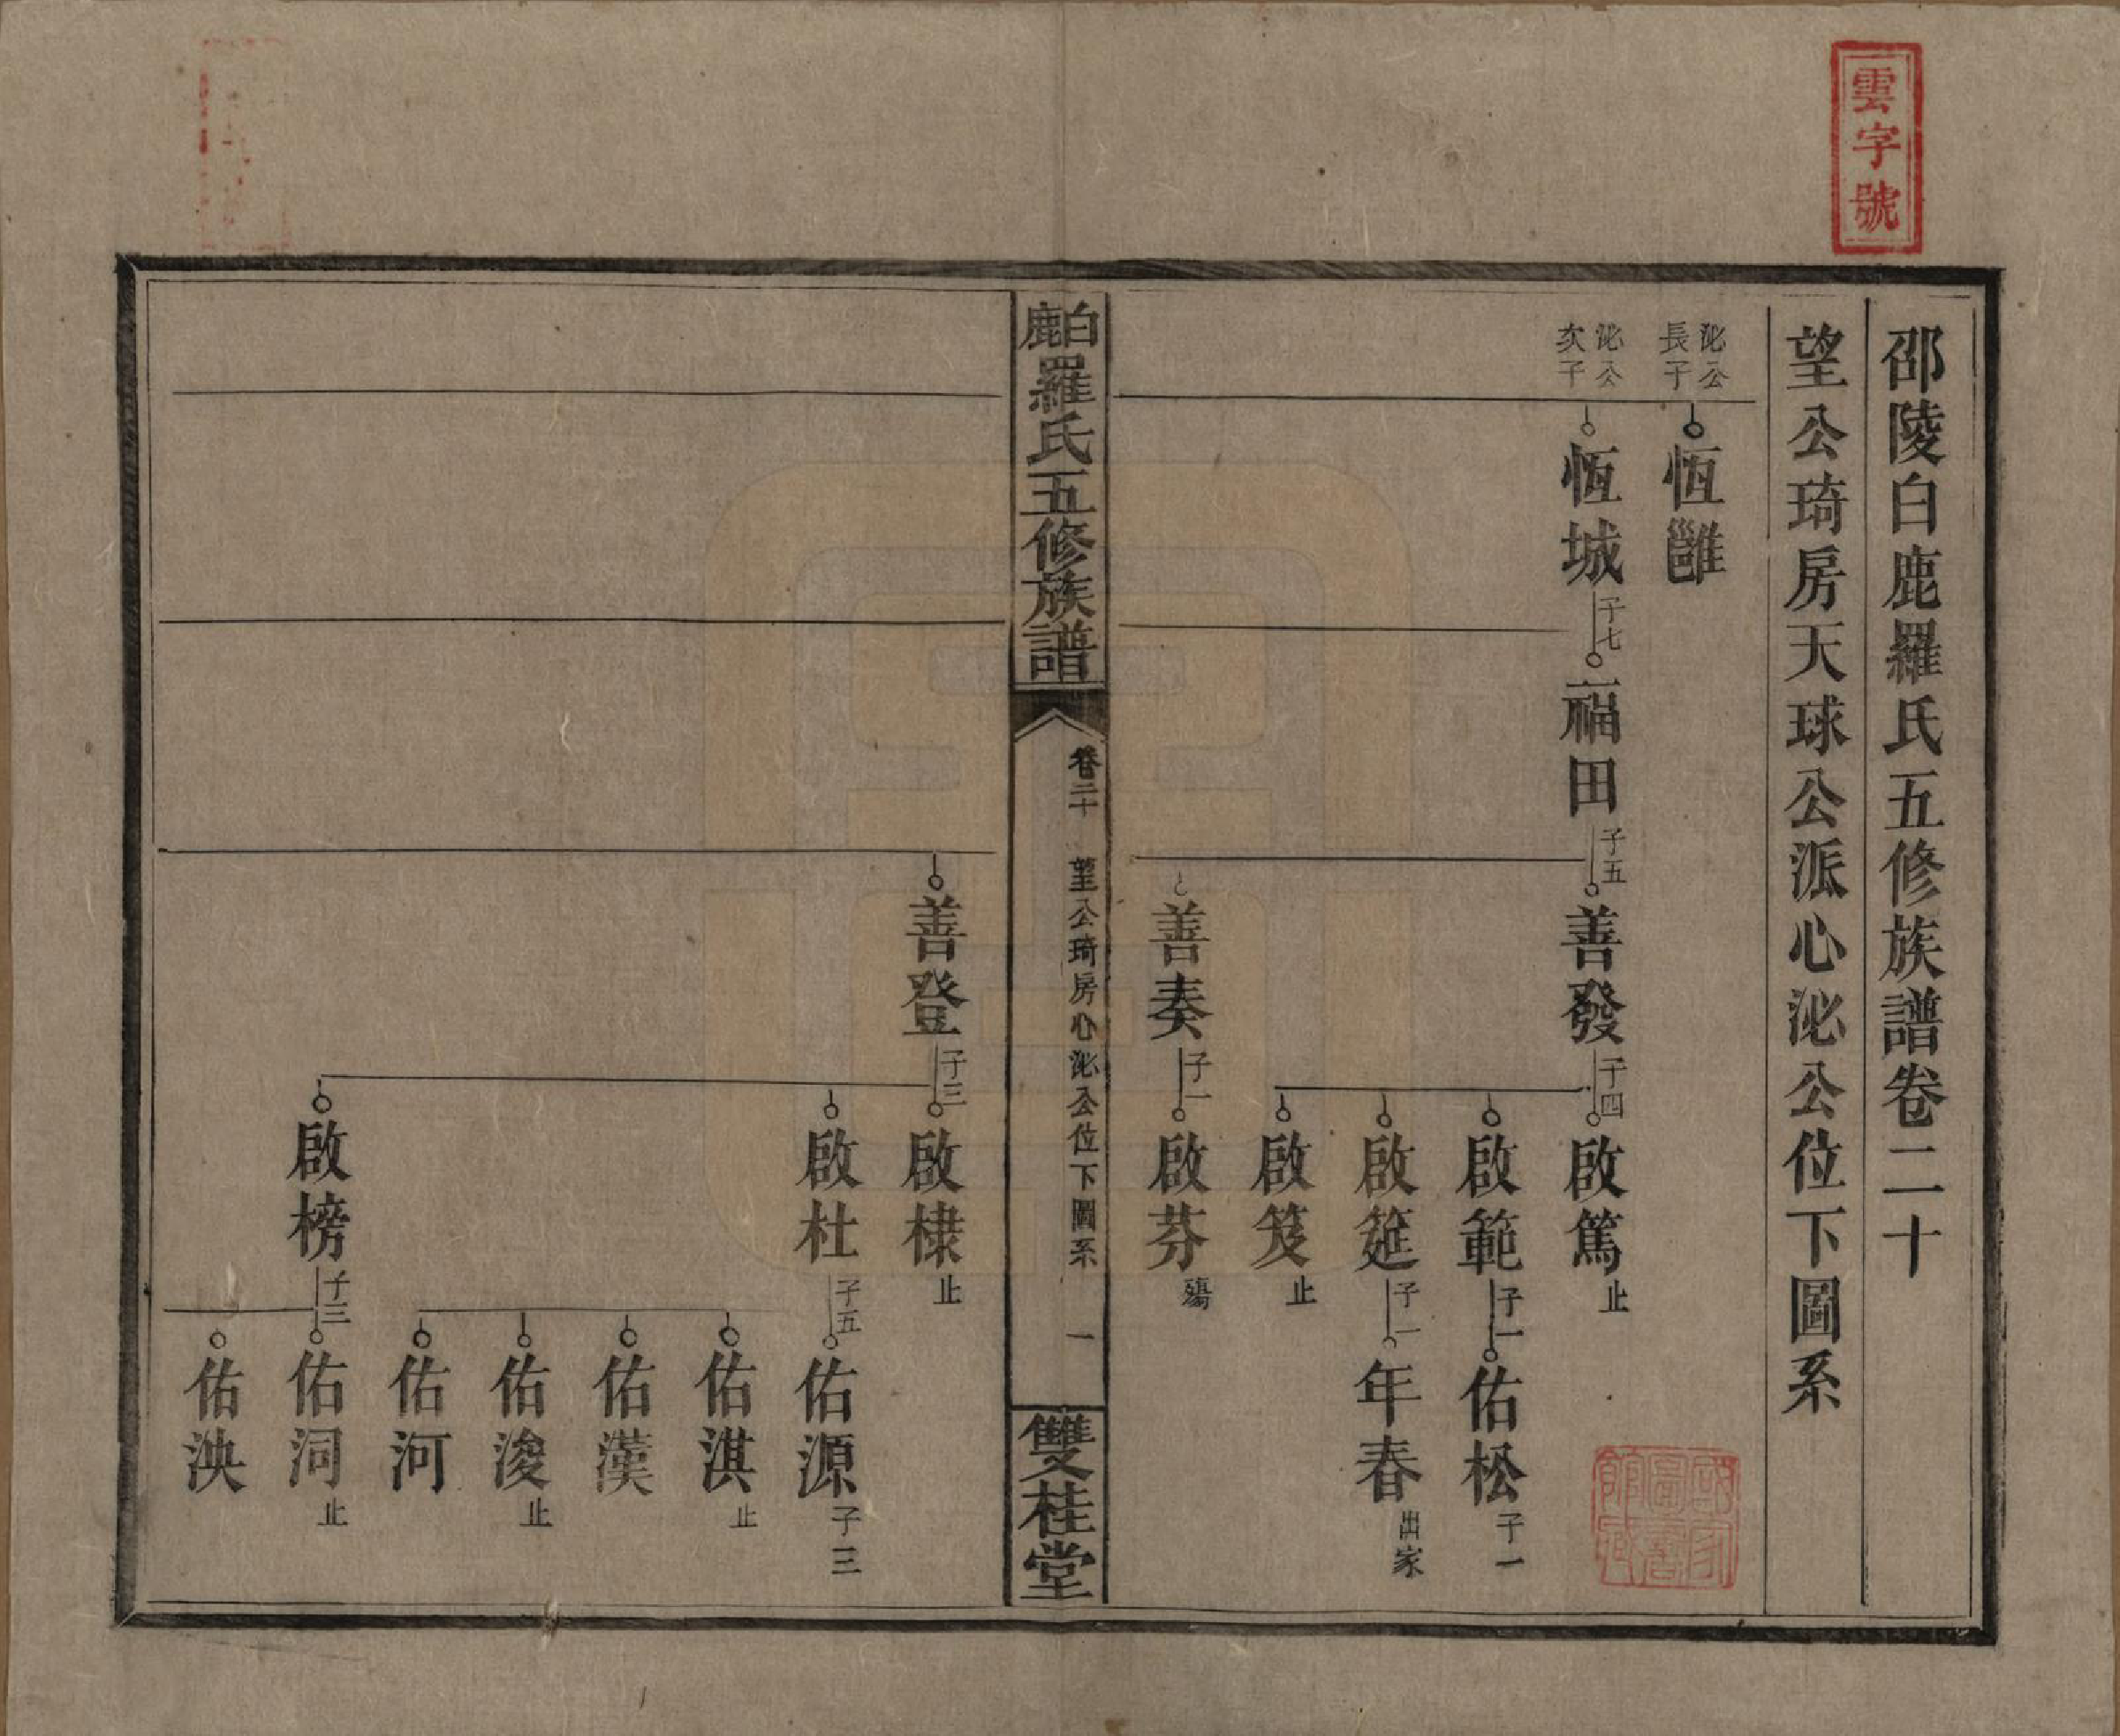 雲字號
邵陵白鹿羅氏五修族譜卷二十
望公琦房天球公派心泌公位下圖系
泌公長子
恆雝
泌公次子
恆城 子七
福田 子五
善發 子四
啟篤 止
啟範 子一
佑松 子一
啟筵 子一
年春 出家
啟笈 止
善奏 子一
啟芬 殤
白鹿羅氏五修族譜
卷二十 望公琦房心泌公位下圖系 一
雙桂堂
善登 子三
啟棣 止
啟杜 子五
佑源 子三
佑淇 止
佑漢
佑浚 止
佑河
啟榜 子三
佑泂 止
佑泱
國家圖書館藏